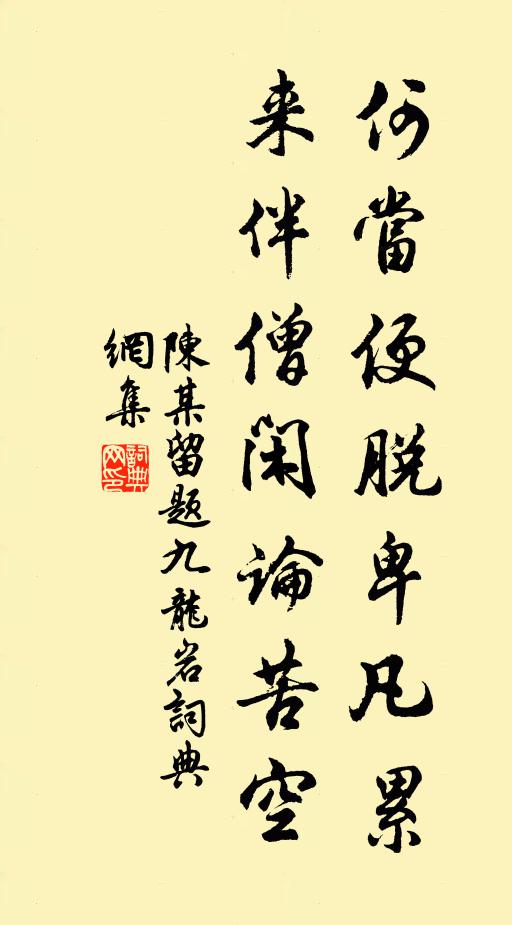 何當便脫卑凡累
来伴僧閑論苦空
陳某留題九龍岩詞典
網集
詞典
网印